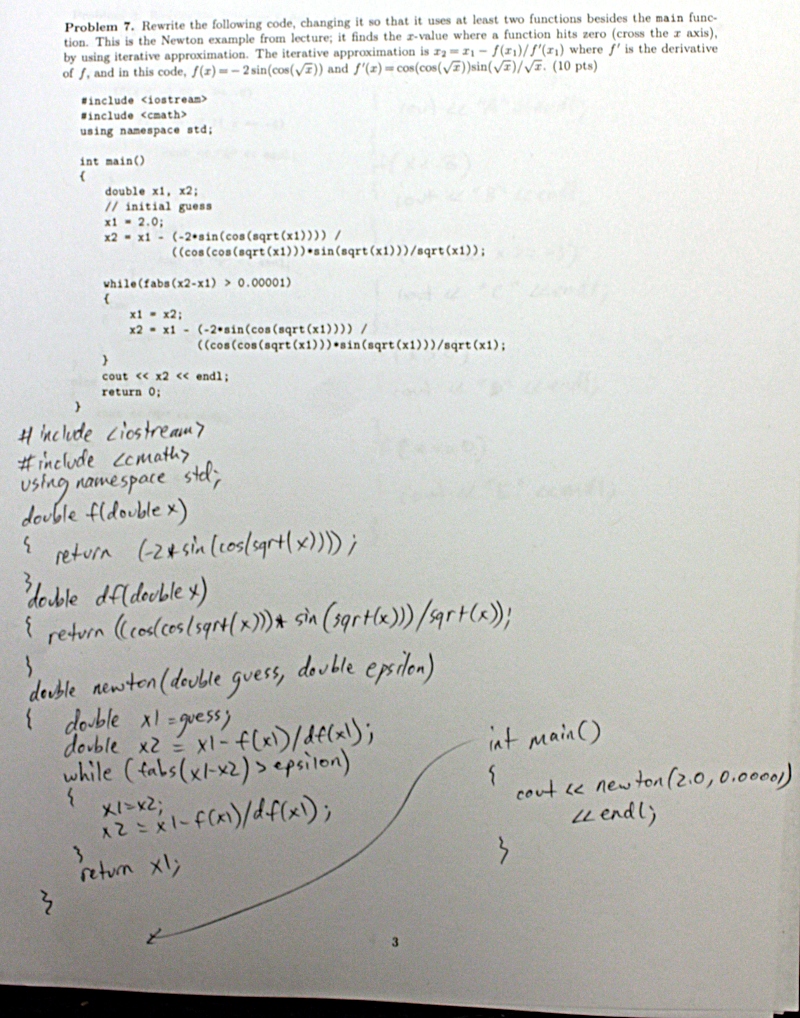 Problem 7. Rewrite the following code, changing it so that it uses at least two functions besides the main func-
tion. This is the Newton example from lecture; it finds the x-value where a function hits zero (cross the x axis),
by using iterative approximation. The iterative approximation is x₂ = x₁ − f(x₁)/f′(x₁) where f′ is the derivative
of f, and in this code, f(x) = − 2 sin(cos(√x)) and f′(x) = cos(cos(√x))sin(√x)/√x. (10 pts)
#include <iostream>
#include <cmath>
using namespace std;
int main()
{
double x1, x2;
// initial guess
x1 = 2.0;
x2 = x1 - (-2*sin(cos(sqrt(x1)))) /
((cos(cos(sqrt(x1)))*sin(sqrt(x1)))/sqrt(x1));
while(fabs(x2-x1) > 0.00001)
{
x1 = x2;
x2 = x1 - (-2*sin(cos(sqrt(x1)))) /
((cos(cos(sqrt(x1)))*sin(sqrt(x1)))/sqrt(x1);
}
cout << x2 << endl;
return 0;
}
#include <iostream>
#include <cmath>
using namespace std;
double f(double x)
{ return (-2*sin(cos(sqrt(x))));
}
double df(double x)
{ return ((cos(cos(sqrt(x)))* sin(sqrt(x)))/sqrt(x));
}
double newton(double guess, double epsilon)
{ double x1 = guess;
double x2 = x1-f(x1)/df(x1);
while (fabs(x1-x2) > epsilon)
{ x1=x2;
x2 = x1-f(x1)/df(x1);
}
return x1;
}
int main()
{ cout << newton(2.0, 0.00001)
<< endl;
}
3